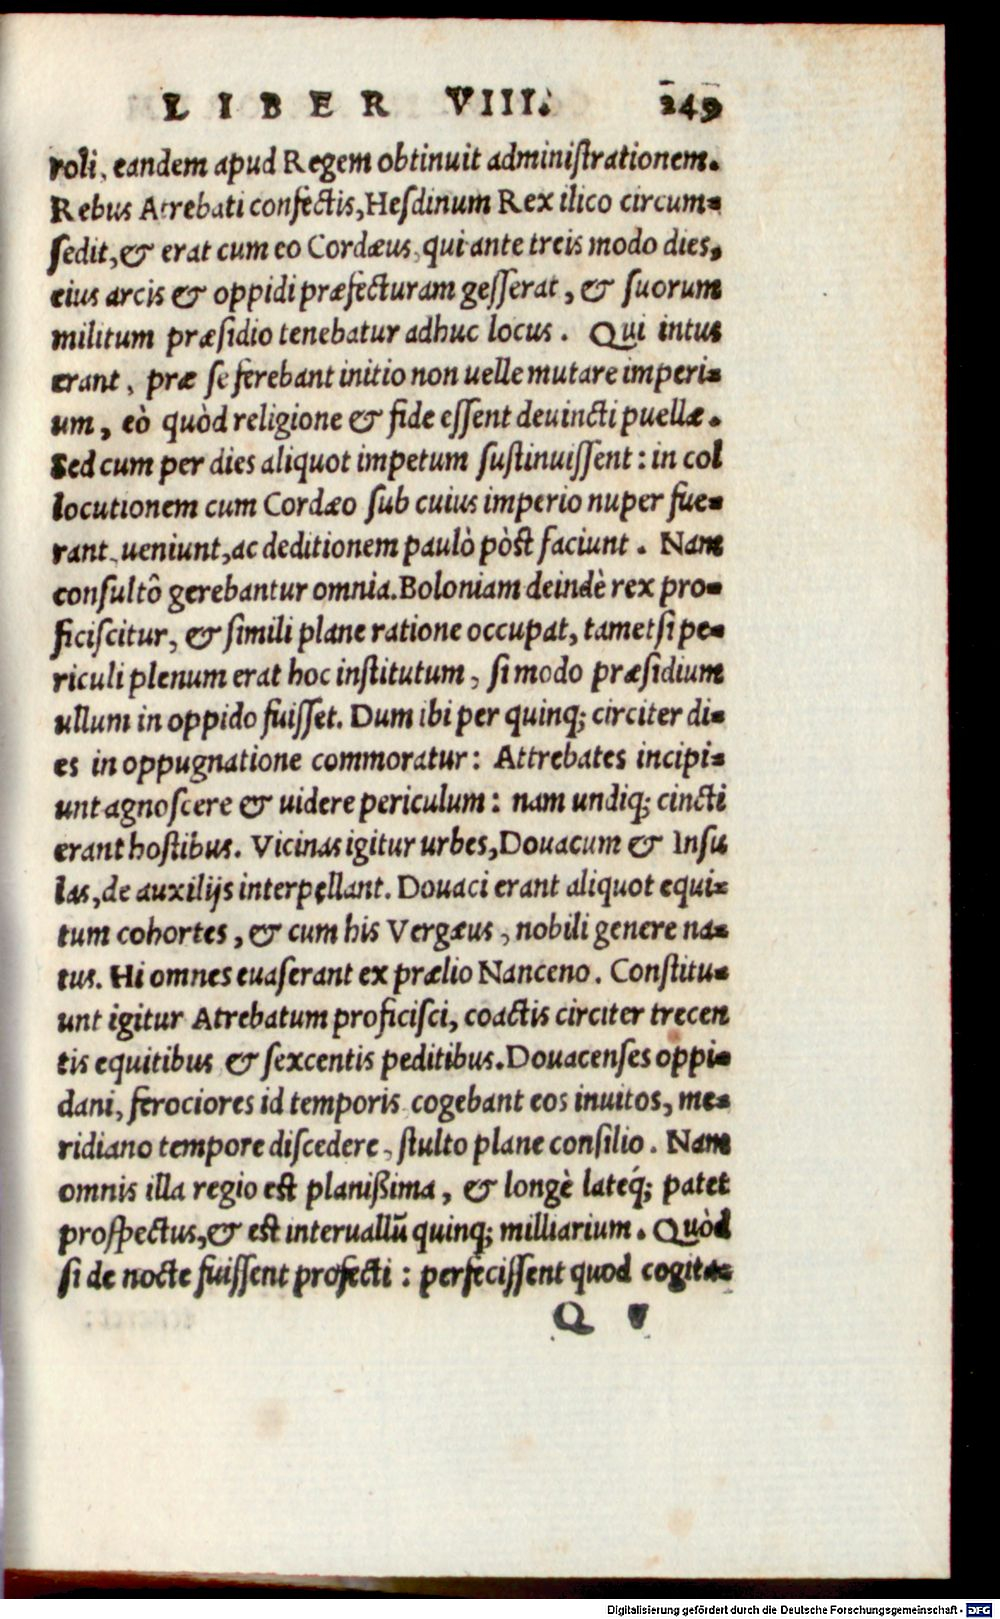 LIBER VIII. 249
roli, eandem apud Regem obtinuit administrationem.
Rebus Atrebati confectis, Hesdinum Rex ilico circum-
sedit, & erat cum eo Cordæus, qui ante treis modo dies,
eius arcis & oppidi præfecturam gesserat, & suorum
militum præsidio tenebatur adhuc locus. Qui intus
erant, præ se ferebant initio non uelle mutare imperi-
um, eò quòd religione & fide essent deuincti puellæ.
Sed cum per dies aliquot impetum sustinuissent: in col
locutionem cum Cordæo sub cuius imperio nuper fue-
rant, ueniunt, ac deditionem paulò pòst faciunt. Nam
consultô gerebantur omnia. Boloniam deindè rex pro-
ficiscitur, & simili plane ratione occupat, tametsi pe-
riculi plenum erat hoc institutum, si modo præsidium
ullum in oppido fuisset. Dum ibi per quinq; circiter di-
es in oppugnatione commoratur: Attrebates incipi-
unt agnoscere & uidere periculum: nam undiq; cincti
erant hostibus. Vicinas igitur urbes, Douacum & Insu
las, de auxilijs interpęllant. Douaci erant aliquot equi-
tum cohortes, & cum his Vergæus, nobili genere na-
tus. Hi omnes euaserant ex prælio Nanceno. Constitu-
unt igitur Atrebatum proficisci, coactis circiter trecen
tis equitibus & sexcentis peditibus. Douacenses oppi-
dani, ferociores id temporis cogebant eos inuitos, me-
ridiano tempore discedere, stulto plane consilio. Nam
omnis illa regio est planißima, & longè lateq́; patet
prospectus, & est interuallũ quinq; milliarium. Quòd
si de nocte fuissent profecti: perfecissent quod cogita-
Q v
Digitalisierung gefördert durch die Deutsche Forschungsgemeinschaft - DFG